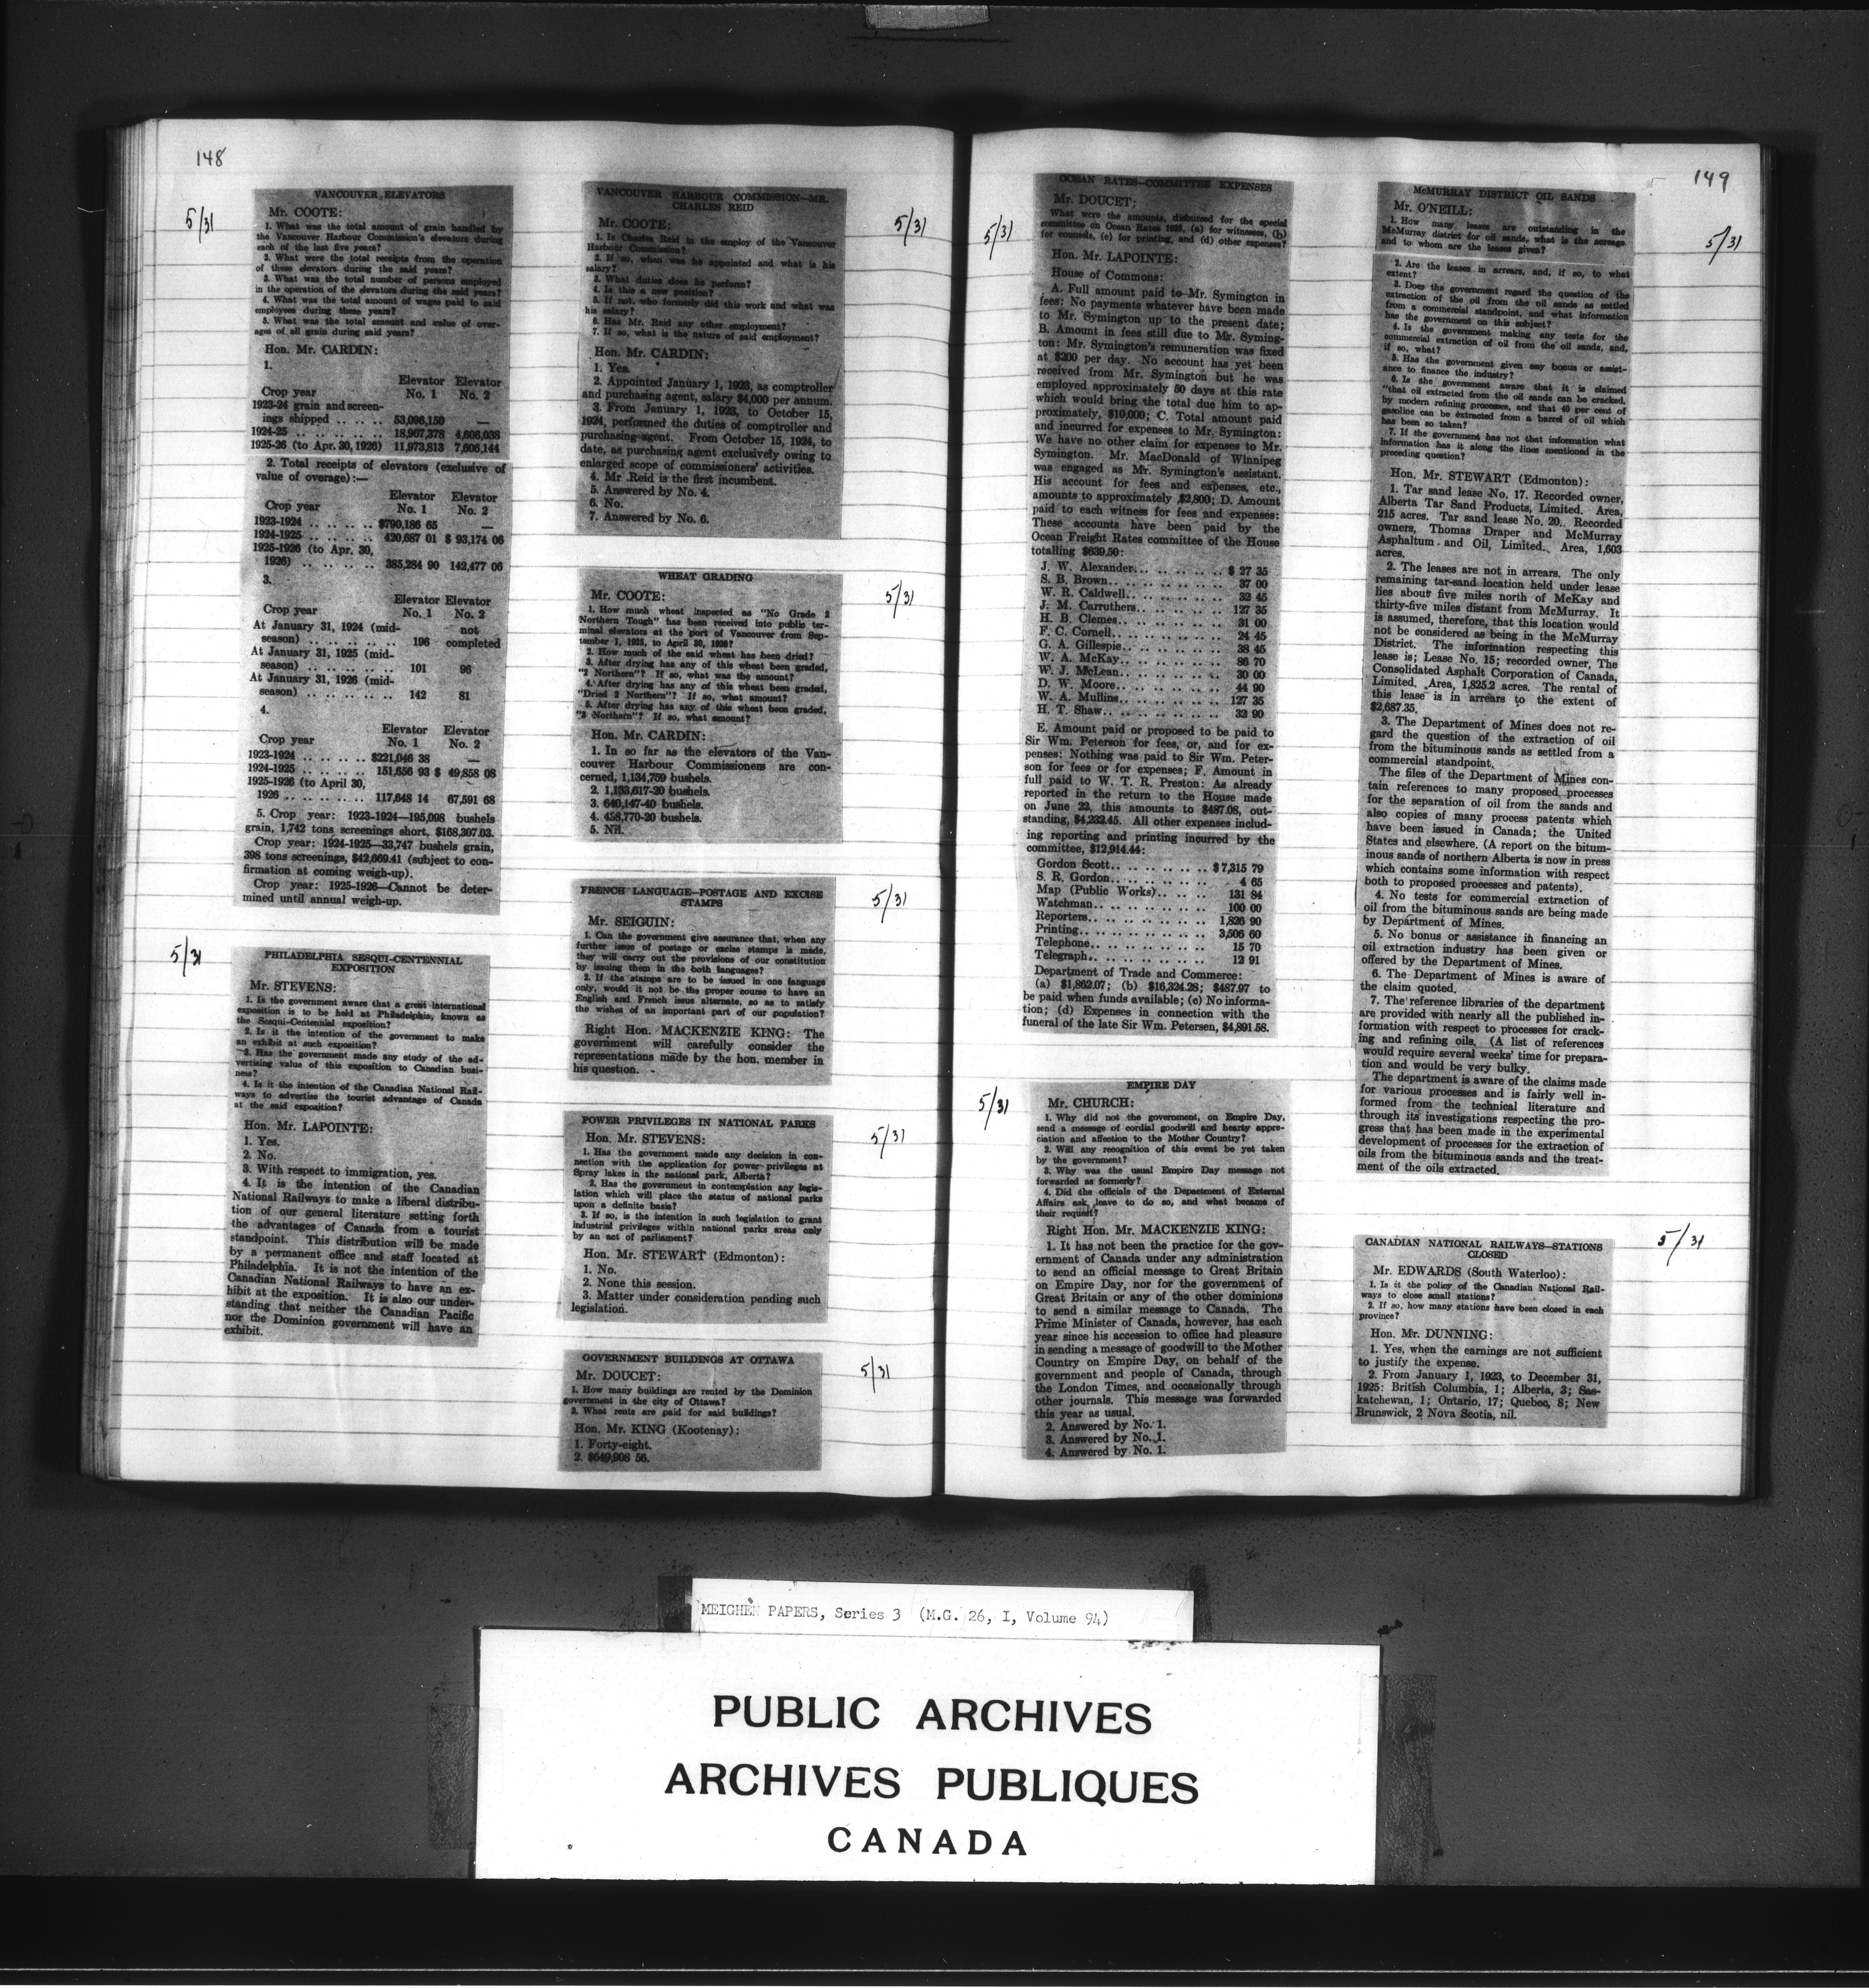 148
5/31
VANCOUVER ELEVATORS
Mr. COOTE:
1. What was the total amount of grain handled by
the Vancouver Harbour Commission's elevators during
each of the last five years?
2. What were the total receipts from the operation
of these elevators during the said years?
3. What was the total number of persons employed
in the operation of the elevators during the said years?
4. What was the total amount of wages paid to said
employees during these years?
5. What was the total amount and value of over-
ages of all grain during said years?
Hon. Mr. CARDIN:
1.
Elevator Elevator
Crop year No. 1 No. 2
1923-24 grain and screen-
ings shipped .. .. .. 53,096,150 —
1924-25 .. .. .. .. .. .. 18,907,378 4,606,038
1925-26 (to Apr. 30, 1926) 11,973,813 7,606,144
2. Total receipts of elevators (exclusive of
value of overage):—
Elevator Elevator
Crop year No. 1 No. 2
1923-1924 .. .. .. .. .. $790,186 65 —
1924-1925 .. .. .. .. .. 420,687 01 $ 93,174 06
1925-1926 (to Apr. 30,
1926) .. .. .. .. .. .. 385,284 90 142,477 06
3.
Elevator Elevator
Crop year No. 1 No. 2
At January 31, 1924 (mid- not
season) .. .. .. .. .. .. 196 completed
At January 31, 1925 (mid-
season) .. .. .. .. .. .. 101 96
At January 31, 1926 (mid-
season) .. .. .. .. .. .. 142 81
4.
Elevator Elevator
Crop year No. 1 No. 2
1923-1924 .. .. .. .. .. $221,046 38 —
1924-1925 .. .. .. .. .. 151,656 93 $ 49,858 08
1925-1926 (to April 30,
1926 .. .. .. .. .. .. 117,648 14 67,591 68
5. Crop year: 1923-1924—195,098 bushels
grain, 1,742 tons screenings short, $168,307.03.
Crop year: 1924-1925—33,747 bushels grain,
398 tons screenings, $42,669.41 (subject to con-
firmation at coming weigh-up).
Crop year: 1925-1926—Cannot be deter-
mined until annual weigh-up.
5/31
PHILADELPHIA SESQUI-CENTENNIAL
EXPOSITION
Mr. STEVENS:
1. Is the government aware that a great international
exposition is to be held at Philadelphia, known as
the Sesqui-Centennial exposition?
2. Is it the intention of the government to make
an exhibit at such exposition?
3. Has the government made any study of the ad-
vertising value of this exposition to Canadian busi-
ness?
4. Is it the intention of the Canadian National Rail-
ways to advertise the tourist advantage of Canada
at the said exposition?
Hon. Mr. LAPOINTE:
1. Yes.
2. No.
3. With respect to immigration, yes.
4. It is the intention of the Canadian
National Railways to make a liberal distribu-
tion of our general literature setting forth
the advantages of Canada from a tourist
standpoint. This distribution will be made
by a permanent office and staff located at
Philadelphia. It is not the intention of the
Canadian National Railways to have an ex-
hibit at the exposition. It is also our under-
standing that neither the Canadian Pacific
nor the Dominion government will have an
exhibit.
VANCOUVER HARBOUR COMMISSION—MR.
CHARLES REID
5/31
Mr. COOTE:
1. Is Charles Reid in the employ of the Vancouver
Harbour Commission?
2. If so, when was he appointed and what is his
salary?
3. What duties does he perform?
4. Is this a new position?
5. If not, who formerly did this work and what was
his salary?
6. Has Mr. Reid any other employment?
7. If so, what is the nature of said employment?
Hon. Mr. CARDIN:
1. Yes.
2. Appointed January 1, 1923, as comptroller
and purchasing agent, salary $4,000 per annum.
3. From January 1, 1923, to October 15,
1924, performed the duties of comptroller and
purchasing-agent. From October 15, 1924, to
date, as purchasing agent exclusively owing to
enlarged scope of commissioners' activities.
4. Mr Reid is the first incumbent.
5. Answered by No. 4.
6. No.
7. Answered by No. 6.
WHEAT GRADING
5/31
Mr. COOTE:
1. How much wheat inspected as "No Grade 2
Northern Tough" has been received into public ter-
minal elevators at the port of Vancouver from Sep-
tember 1, 1925, to April 30, 1926?
2. How much of the said wheat has been dried?
3. After drying has any of this wheat been graded,
"2 Northern"? If so, what was the amount?
4. After drying has any of this wheat been graded,
"Dried 2 Northern"? If so, what amount?
5. After drying has any of this wheat been graded,
"3 Northern"? If so, what amount?
Hon. Mr. CARDIN:
1. In so far as the elevators of the Van-
couver Harbour Commissioners are con-
cerned, 1,134,759 bushels.
2. 1,133,617-20 bushels.
3. 640,147-40 bushels.
4. 458,770-20 bushels.
5. Nil.
FRENCH LANGUAGE—POSTAGE AND EXCISE
STAMPS
5/31
Mr. SEIGUIN:
1. Can the government give assurance that, when any
further issue of postage or excise stamps is made,
they will carry out the provisions of our constitution
by issuing them in the both languages?
2. If the stamps are to be issued in one language
only, would it not be the proper course to have an
English and French issue alternate, so as to satisfy
the wishes of an important part of our population?
Right Hon. MACKENZIE KING: The
government will carefully consider the
representations made by the hon. member in
his question.
POWER PRIVILEGES IN NATIONAL PARKS
5/31
Hon. Mr. STEVENS:
1. Has the government made any decision in con-
nection with the application for power privileges at
Spray lakes in the national park, Alberta?
2. Has the government in contemplation any legis-
lation which will place the status of national parks
upon a definite basis?
3. If so, is the intention in such legislation to grant
industrial privileges within national parks areas only
by an act of parliament?
Hon. Mr. STEWART (Edmonton):
1. No.
2. None this session.
3. Matter under consideration pending such
legislation.
GOVERNMENT BUILDINGS AT OTTAWA
5/31
Mr. DOUCET:
1. How many buildings are rented by the Dominion
government in the city of Ottawa?
2. What rents are paid for said buildings?
Hon. Mr. KING (Kootenay):
1. Forty-eight.
2. $649,908 56.
149
5/31
OCEAN RATES—COMMITTEE EXPENSES
Mr. DOUCET:
What were the amounts, disbursed for the special
committee on Ocean Rates 1925, (a) for witnesses, (b)
for counsels, (c) for printing, and (d) other expenses?
Hon. Mr. LAPOINTE:
House of Commons:
A. Full amount paid to Mr. Symington in
fees: No payments whatever have been made
to Mr. Symington up to the present date;
B. Amount in fees still due to Mr. Syming-
ton: Mr. Symington's remuneration was fixed
at $200 per day. No account has yet been
received from Mr. Symington but he was
employed approximately 50 days at this rate
which would bring the total due him to ap-
proximately, $10,000; C. Total amount paid
and incurred for expenses to Mr. Symington:
We have no other claim for expenses to Mr.
Symington. Mr. MacDonald of Winnipeg
was engaged as Mr. Symington's assistant.
His account for fees and expenses, etc.,
amounts to approximately $2,800; D. Amount
paid to each witness for fees and expenses:
These accounts have been paid by the
Ocean Freight Rates committee of the House
totalling $639.50:
J. W. Alexander... .. .. .. .. $ 27 35
S. B. Brown.. .. .. .. .. .. 37 00
W. R. Caldwell.. .. .. .. .. 32 45
J. M. Carruthers.. .. .. .. .. 127 35
H. B. Clemes.. .. .. .. .. .. 31 00
F. C. Cornell.. .. .. .. .. .. 24 45
G. A. Gillespie.. .. .. .. .. .. 38 45
W. A. McKay.. .. .. .. .. .. 86 70
W. J. McLean.. .. .. .. .. .. 30 00
D. W. Moore.. .. .. .. .. .. 44 90
W. A. Mullins.. .. .. .. .. .. 127 35
H. T. Shaw.. .. .. .. .. .. .. 32 90
E. Amount paid or proposed to be paid to
Sir Wm. Peterson for fees, or, and for ex-
penses: Nothing was paid to Sir Wm. Peter-
son for fees or for expenses; F. Amount in
full paid to W. T. R. Preston: As already
reported in the return to the House made
on June 22, this amounts to $487.08, out-
standing, $4,232.45. All other expenses includ-
ing reporting and printing incurred by the
committee, $12,914.44:
Gordon Scott.. .. .. .. .. .. $7,315 79
S. R. Gordon.. .. .. .. .. .. 4 65
Map (Public Works).. .. .. .. 131 84
Watchman.. .. .. .. .. .. .. 100 00
Reporters.. .. .. .. .. .. .. 1,826 90
Printing.. .. .. .. .. .. .. .. 3,506 60
Telephone.. .. .. .. .. .. .. 15 70
Telegraph.. .. .. .. .. .. .. 12 91
Department of Trade and Commerce:
(a) $1,862.07; (b) $16,324.28; $487.97 to
be paid when funds available; (c) No informa-
tion; (d) Expenses in connection with the
funeral of the late Sir Wm. Petersen, $4,891.58.
5/31
EMPIRE DAY
Mr. CHURCH:
1. Why did not the government, on Empire Day,
send a message of cordial goodwill and hearty appre-
ciation and affection to the Mother Country?
2. Will any recognition of this event be yet taken
by the government?
3. Why was the usual Empire Day message not
forwarded as formerly?
4. Did the officials of the Department of External
Affairs ask leave to do so, and what became of
their request?
Right Hon. Mr. MACKENZIE KING:
1. It has not been the practice for the gov-
ernment of Canada under any administration
to send an official message to Great Britain
on Empire Day, nor for the government of
Great Britain or any of the other dominions
to send a similar message to Canada. The
Prime Minister of Canada, however, has each
year since his accession to office had pleasure
in sending a message of goodwill to the Mother
Country on Empire Day, on behalf of the
government and people of Canada, through
the London Times, and occasionally through
other journals. This message was forwarded
this year as usual.
2. Answered by No. 1.
3. Answered by No. 1.
4. Answered by No. 1.
McMURRAY DISTRICT OIL SANDS
5/31
Mr. O'NEILL:
1. How many leases are outstanding in the
McMurray district for oil sands, what is the acreage
and to whom are the leases given?
2. Are the leases in arrears, and, if so, to what
extent?
3. Does the government regard the question of the
extraction of the oil from the oil sands as settled
from a commercial standpoint, and what information
has the government on this subject?
4. Is the government making any tests for the
commercial extraction of oil from the oil sands, and,
if so, what?
5. Has the government given any bonus or assist-
ance to finance the industry?
6. Is the government aware that it is claimed
"that oil extracted from the oil sands can be cracked,
by modern refining processes, and that 40 per cent of
gasoline can be extracted from a barrel of oil which
has been so taken?
7. If the government has not that information what
information has it along the lines mentioned in the
preceding question?
Hon. Mr. STEWART (Edmonton):
1. Tar sand lease No. 17. Recorded owner,
Alberta Tar Sand Products, Limited. Area,
215 acres. Tar sand lease No. 20.. Recorded
owners, Thomas Draper and McMurray
Asphaltum and Oil, Limited. Area, 1,603
acres.
2. The leases are not in arrears. The only
remaining tar-sand location held under lease
lies about five miles north of McKay and
thirty-five miles distant from McMurray. It
is assumed, therefore, that this location would
not be considered as being in the McMurray
District. The information respecting this
lease is; Lease No. 15; recorded owner, The
Consolidated Asphalt Corporation of Canada,
Limited. Area, 1,825.2 acres. The rental of
this lease is in arrears to the extent of
$2,687.35.
3. The Department of Mines does not re-
gard the question of the extraction of oil
from the bituminous sands as settled from a
commercial standpoint.
The files of the Department of Mines con-
tain references to many proposed processes
for the separation of oil from the sands and
also copies of many process patents which
have been issued in Canada; the United
States and elsewhere. (A report on the bitum-
inous sands of northern Alberta is now in press
which contains some information with respect
both to proposed processes and patents).
4. No tests for commercial extraction of
oil from the bituminous sands are being made
by Department of Mines.
5. No bonus or assistance in financing an
oil extraction industry has been given or
offered by the Department of Mines.
6. The Department of Mines is aware of
the claim quoted.
7. The reference libraries of the department
are provided with nearly all the published in-
formation with respect to processes for crack-
ing and refining oils. (A list of references
would require several weeks' time for prepara-
tion and would be very bulky.
The department is aware of the claims made
for various processes and is fairly well in-
formed from the technical literature and
through its investigations respecting the pro-
gress that has been made in the experimental
development of processes for the extraction of
oils from the bituminous sands and the treat-
ment of the oils extracted.
5/31
CANADIAN NATIONAL RAILWAYS—STATIONS
CLOSED
Mr. EDWARDS (South Waterloo):
1. Is it the policy of the Canadian National Rail-
ways to close small stations?
2. If so, how many stations have been closed in each
province?
Hon. Mr. DUNNING:
1. Yes, when the earnings are not sufficient
to justify the expense.
2. From January 1, 1923, to December 31,
1925: British Columbia, 1; Alberta, 3; Sas-
katchewan, 1; Ontario, 17; Quebec, 8; New
Brunswick, 2 Nova Scotia, nil.
MEIGHEN PAPERS, Series 3 (M.G. 26, I, Volume 94)
PUBLIC ARCHIVES
ARCHIVES PUBLIQUES
CANADA